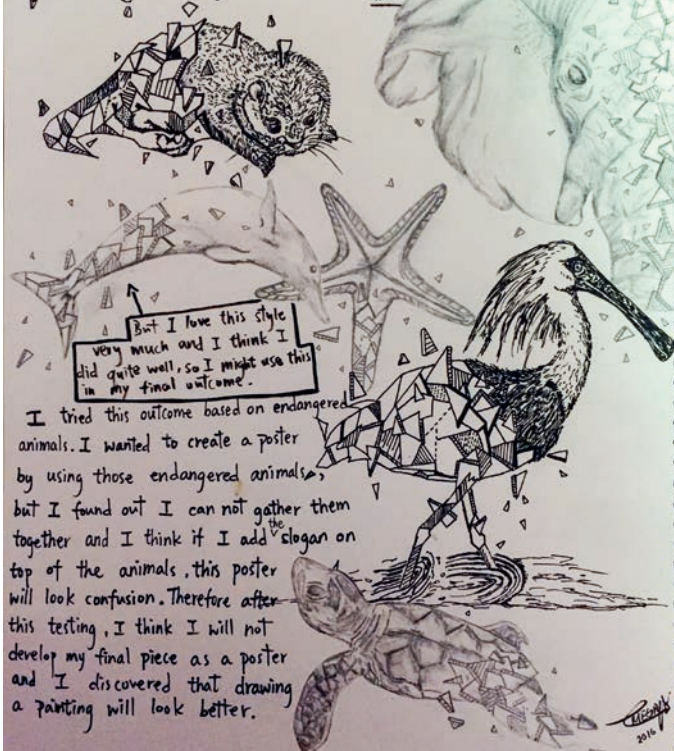 But I love this style
very much and I think I
did quite well, so I might use this
in my final outcome.
I tried this outcome based on endangered
animals. I wanted to create a poster
by using those endangered animals,
but I found out I can not gather them
together and I think if I add the slogan on
top of the animals, this poster
will look confusion. Therefore after
this testing, I think I will not
develop my final piece as a poster
and I discovered that drawing
a painting will look better.
2016